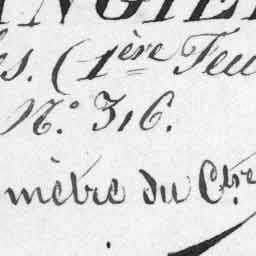 NGIE
s. (1ère Feu
N.° 316.
mètre du Ctre